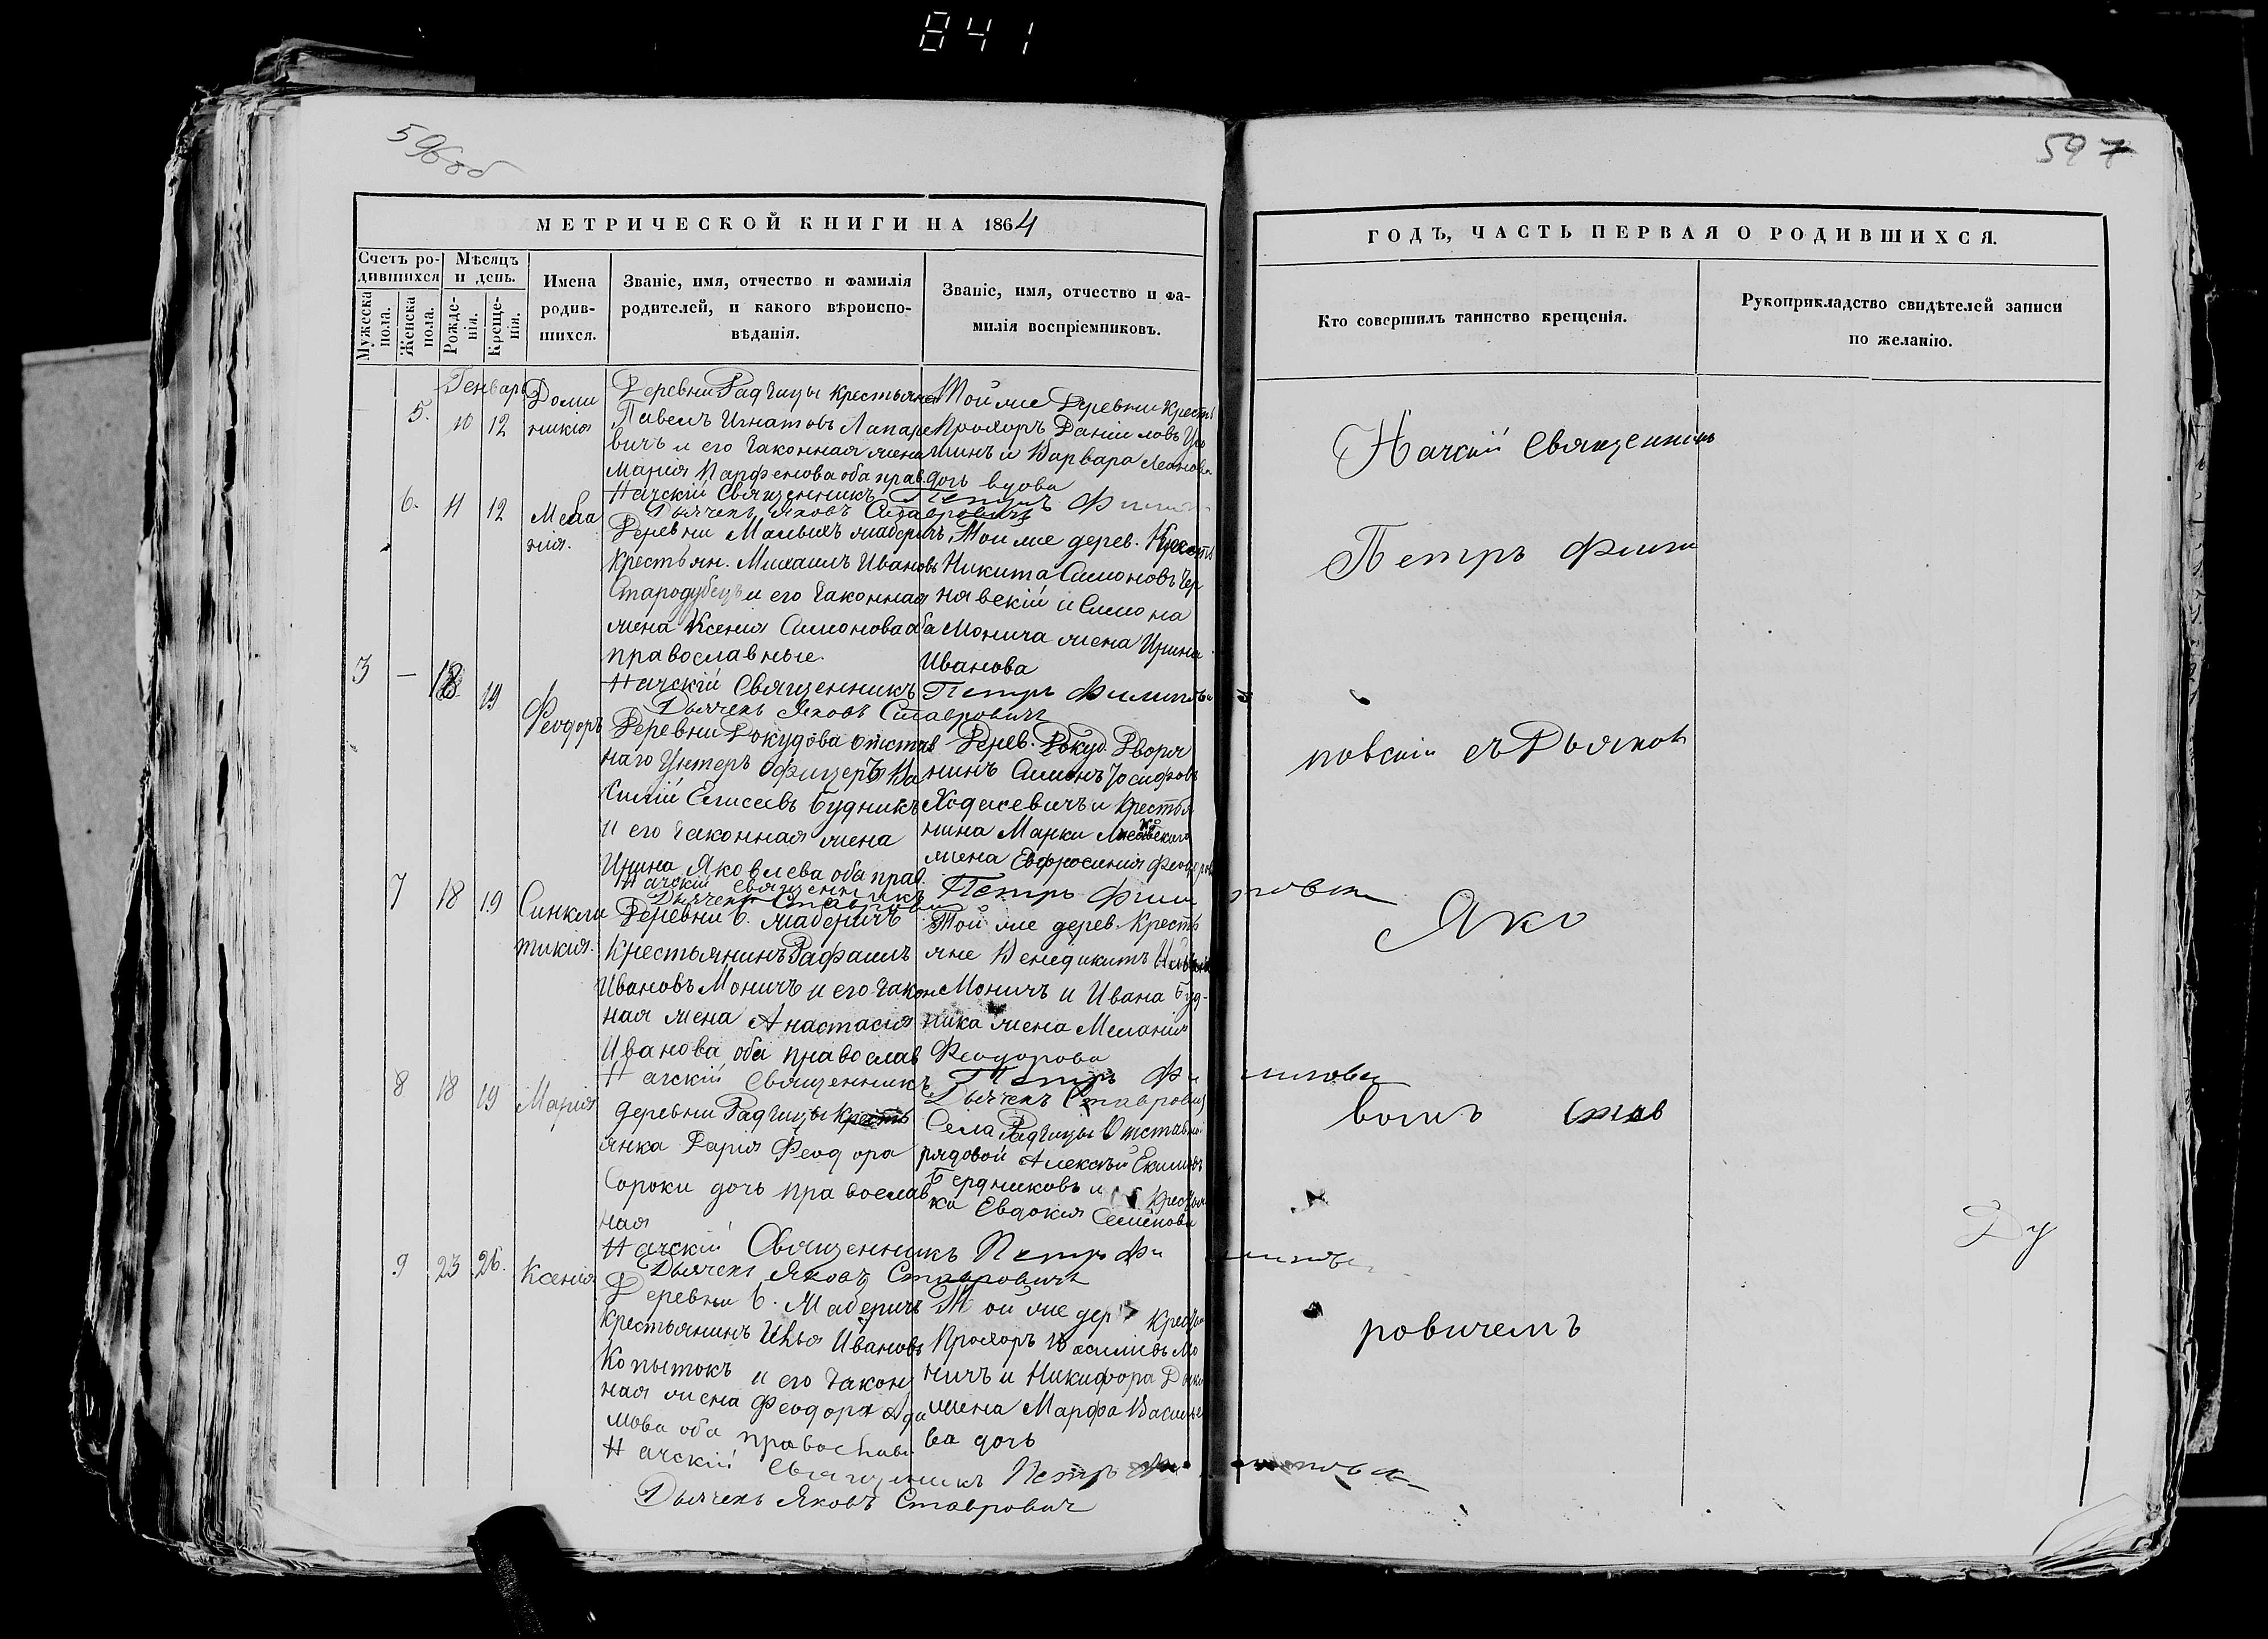 841
596 об
597
МЕТРИЧЕСКОЙ КНИГИ НА 1864
ГОДЪ, ЧАСТЬ ПЕРВАЯ О РОДИВШИХСЯ.
Счетъ ро-
дившихся
Мужеска
пола.
Женска
пола.
Мѣсяцъ
и день.
Рожде-
нія.
Креще-
нія.
Имена
родив-
шихся.
Званіе, имя, отчество и фамилія
родителей, и какого вѣроиспо-
вѣданія.
Званіе, имя, отчество и фа-
милія воспріемниковъ.
Кто совершилъ таинство крещенія.
Рукоприкладство свидѣтелей записи
по желанію.
Генварь
5. 10 12
Доми
никія
Деревни Радчицы крестьянинъ
Павелъ Игнатовъ Лапаре
вичъ и его законная жена
Марія Парфенова оба прав.
Той же деревни крестья
Прохоръ Даніиловъ
шинъ и Варвара
дочь вдова
Начскій Священникъ Петръ
Дьячекъ Яковъ Ставровичъ
6. 11 12
Мела
нія.
Деревни Малыхъ Жаберичъ
Крестьян. Михаилъ Ивановъ
Стародубецъ и его законная
жена Ксенія Симонова оба
православные.
Той же дерев. Крестья
Никита Симоновъ Чер
нявскій и Симона
Монича жена Ирина
Иванова
Начскій Священникъ Петръ Филипов
Дьячекъ Яковъ Ставровичъ
3 — 18 19
Феодоръ
Деревни Докудова отстав
наго Унтеръ Офицеръ Ва
силій Елисеевъ Будникъ
и его законная жена
Ирина Яковлева оба прав.
Дерев. Докуд. Дворя
нинъ Симонъ Іосифовъ
Ходасевичъ и крестья
нина Марки
жена Евфросинія Феодорова
Начскій Священникъ Петръ Филиповск
Дьячекъ Ставровичъ
7 18 19
Синкли
тикія.
Деревни Б. Жаберичъ
Крестьянинъ Рафаилъ
Ивановъ Моничъ и его закон
ная жена Анастасія
Иванова оба православ
Той же дерев. Кресть
яне Венедиктъ
Моничъ и Ивана Буд-
ника жена Меланія
Феодорова
Начскій Священникъ Петръ Филиповск
Дьячекъ Ставровичъ
8 18 19
Марія
деревни Радчицы Кресть
янка Дарія Феодора
Сороки дочь православ
ная
Села Радчицы Отставной
рядовой Алексѣй Екимовъ
Бердниковъ и крестьян
ка Евдокія Семенова
Начскій Священникъ Петръ Филиповск
Дьячекъ Яковъ Ставровичъ
9 23 26.
Ксенія
Деревни Б. Жаберичъ
Крестьянинъ Илья Ивановъ
Копытокъ и его закон
ная жена Феодора Ада
мова оба православ
Той же дер. крестьян
Прохоръ Василіевъ Мо
ничъ и Никифора
жена Марфа Василье
ва дочь
Начскій Священникъ Петръ
Дьячекъ Яковъ Ставровичъ
Начскій Священникъ
Петръ Фили
повскій съ Дьячком
Яко
вомъ Став
ровичемъ
Ду